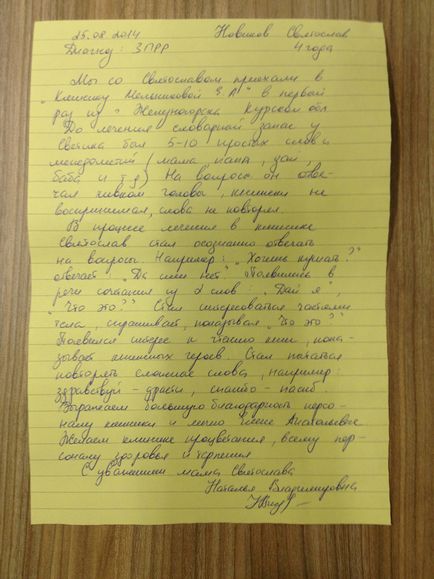 25.08.2014 Новиков Святослав
Диагноз: ЗПРР 4 года
Мы со Святославом приехали в
"Клинику Мельниковой Э А" в первой
раз из г Железногорска Курской обл.
До лечения словарный запас у
Светика был 5-10 простых слов и
междометий (мама, папа, зай,
баба и т д) На вопросы он отве-
чал кивком головы, книжки не
воспринимал, слова не повторял.
В процессе лечения в клинике
Святослав стал осознанно отвечать
на вопросы. Например: "Хочешь кушать?"
отвечает "Да или нет" Появились в
речи сочетания из 2 слов: "Дай я",
"Что это?" Стал интересоваться частями
тела, спрашивает, показывая "Что это?"
Появился интерес к чтению книг, пока-
зывает книжных героев. Стал пытаться
повторять сложные слова, например:
здравствуй - дрясти, спасибо - пасиб
Выражаем большую благодарность персо-
налу клиники и лично Анатольевне
Желаем клинике процветания, всему пер-
соналу здоровья и терпения
С уважением мама Святослава
Наталья Владимировна